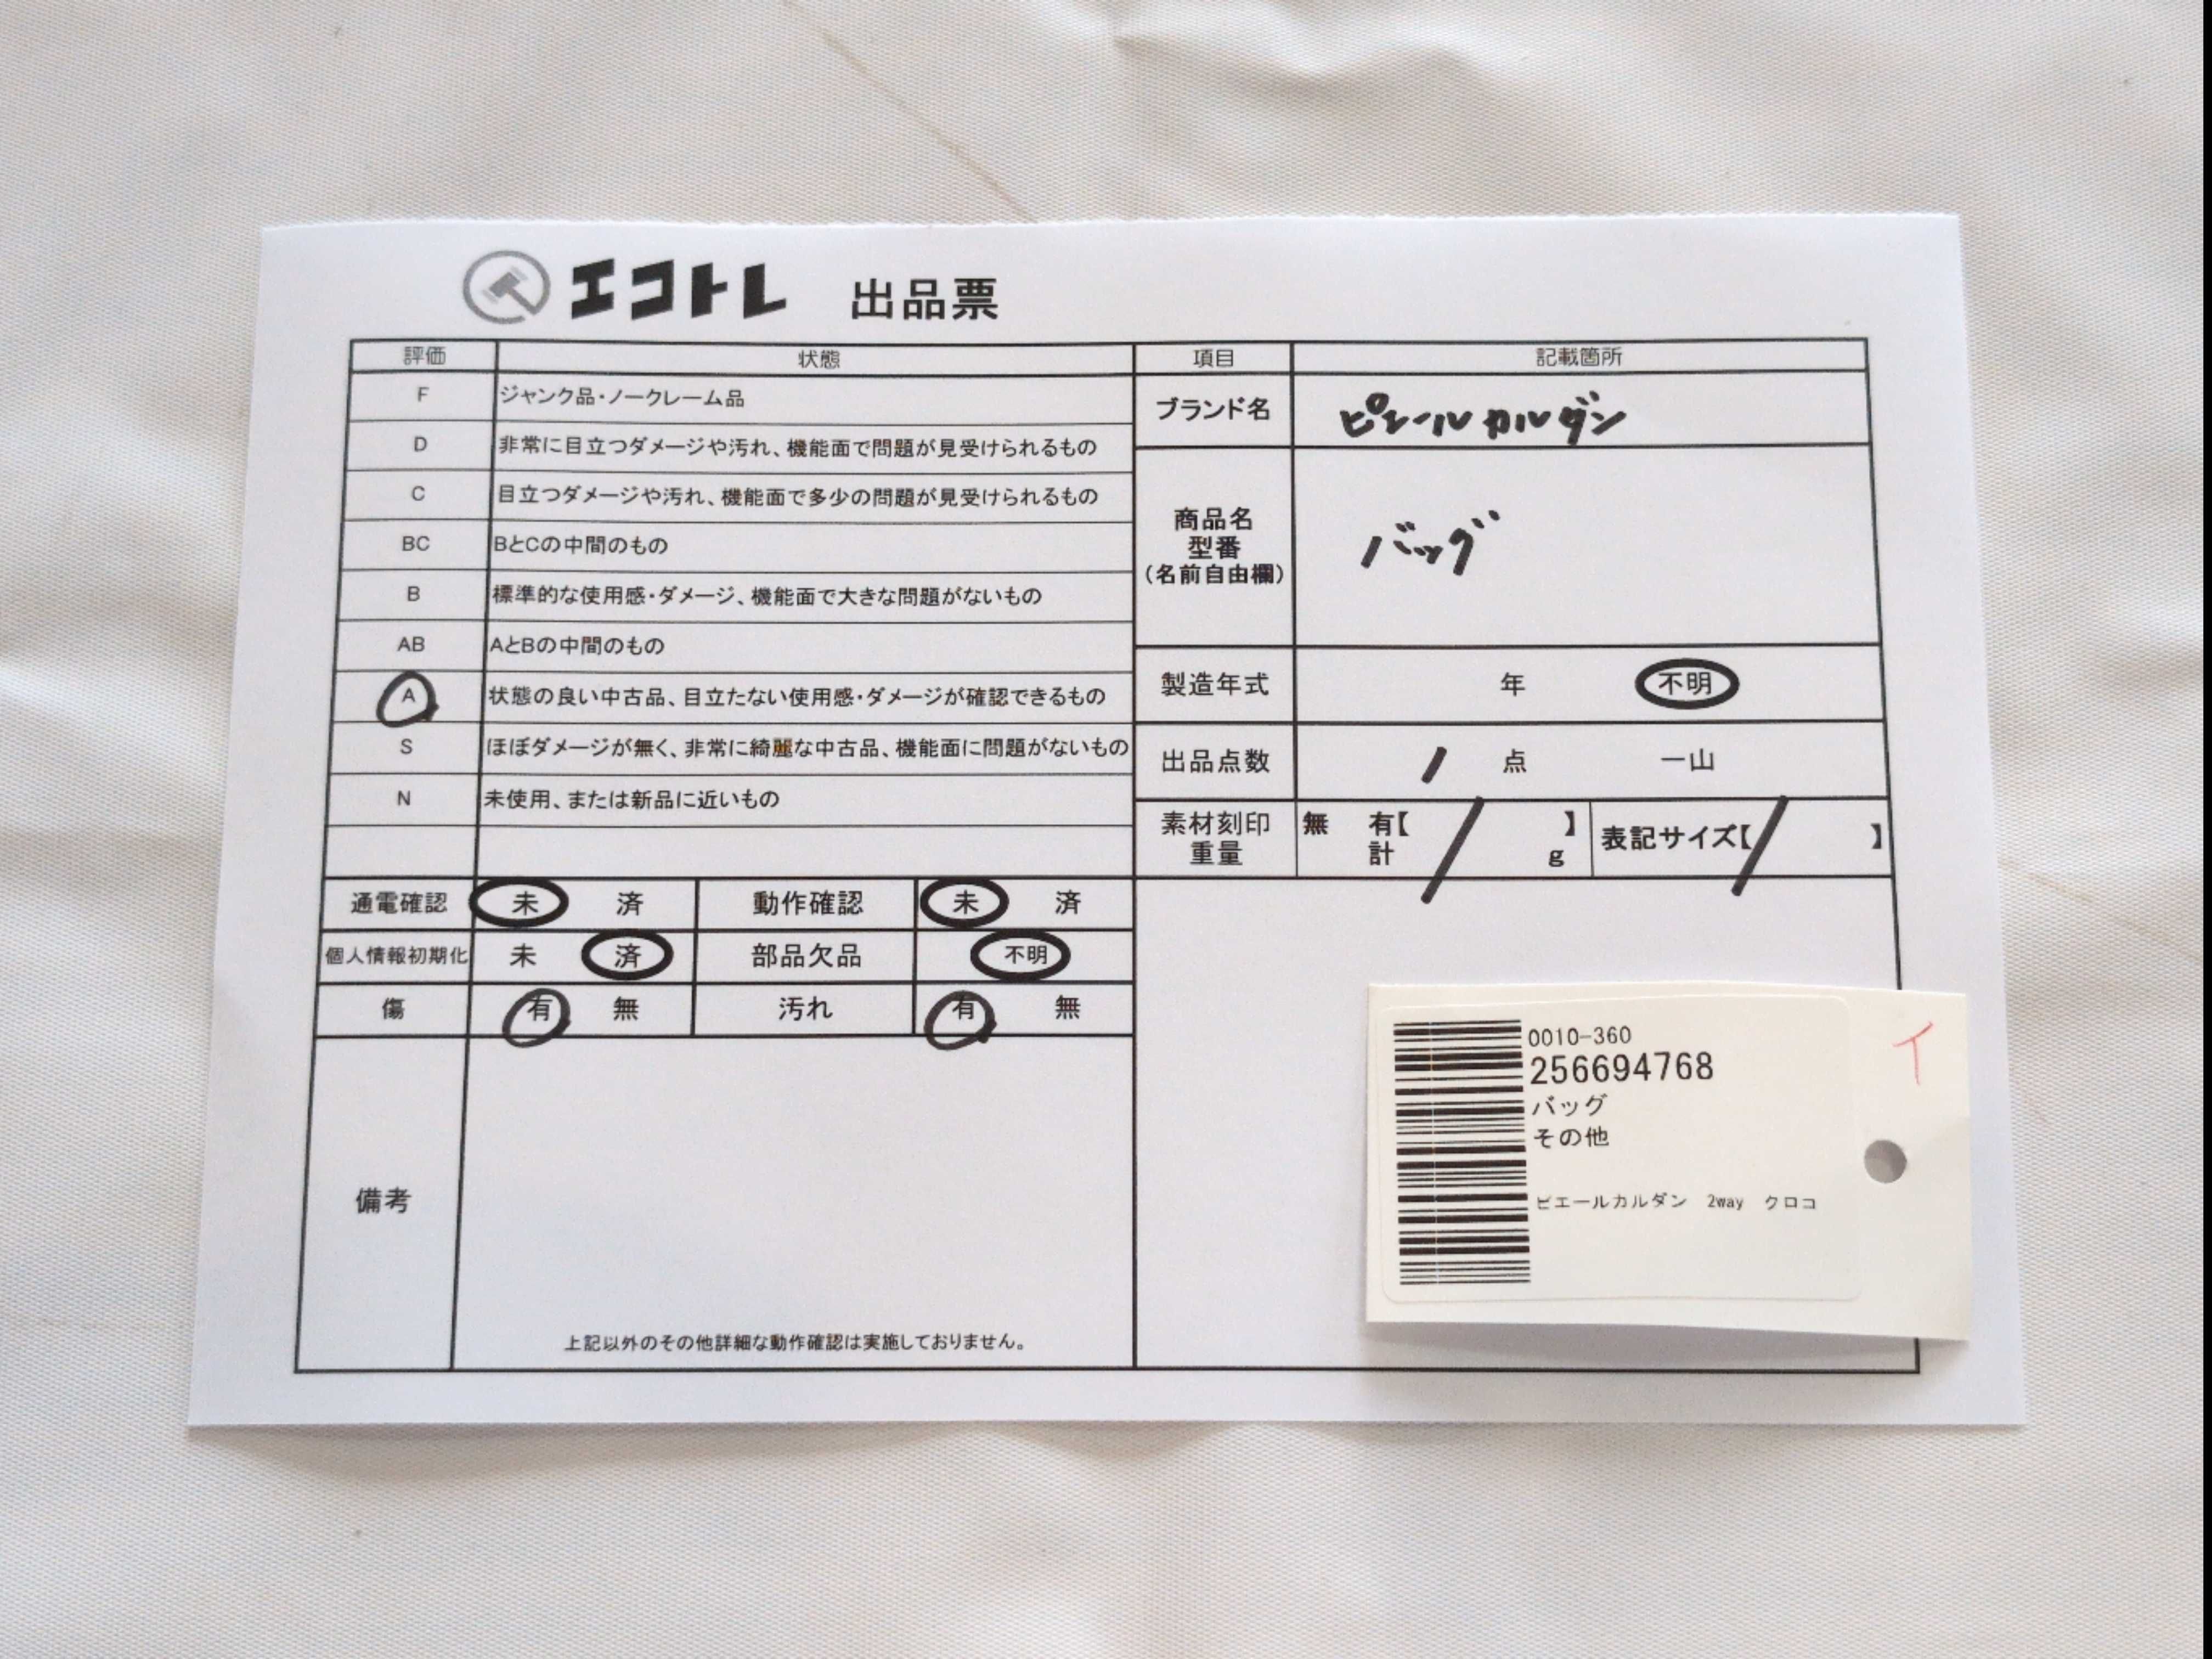 エコトレ 出品票
評価 状態
F ジャンク品・ノークレーム品
D 非常に目立つダメージや汚れ、機能面で問題が見受けられるもの
C 目立つダメージや汚れ、機能面で多少の問題が見受けられるもの
BC BとCの中間のもの
B 標準的な使用感・ダメージ、機能面で大きな問題がないもの
AB AとBの中間のもの
A 状態の良い中古品、目立たない使用感・ダメージが確認できるもの
S ほぼダメージが無く、非常に綺麗な中古品、機能面に問題がないもの
N 未使用、または新品に近いもの
通電確認 未 済 動作確認 未 済
個人情報初期化 未 済 部品欠品 不明
傷 有 無 汚れ 有 無
備考
上記以外のその他詳細な動作確認は実施しておりません。
項目 記載箇所
ブランド名 ピエールカルダン
商品名
型番
(名前自由欄)
バッグ
製造年式 年 不明
出品点数 1 点 一山
素材刻印 無 有【 】
重量 計 g
表記サイズ【 】
0010-360
256694768
バッグ
その他
ピエールカルダン 2way クロコ
イ